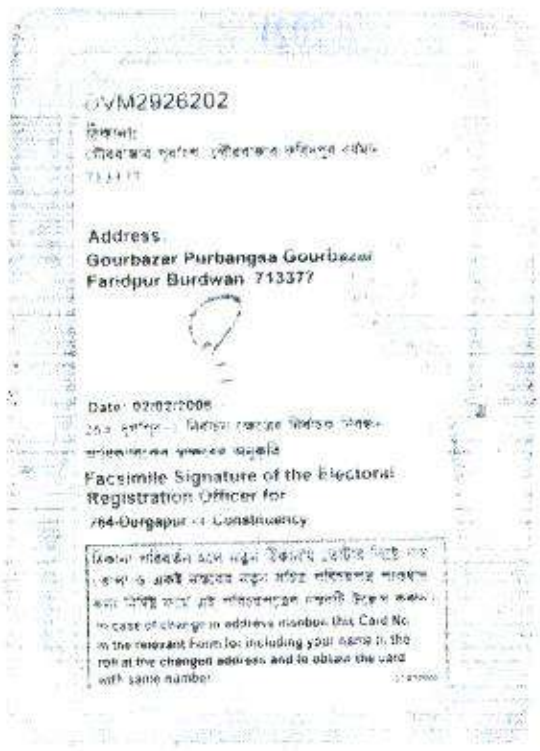 VM2926202
ঠিকানা:
গৌরবাজার পূর্বাংশ গৌরবাজার ফরিদপুর বর্ধমান
Address
Gourbazar Purbangsa Gourbazar
Faridpur Burdwan 71337?
Date: 02/02/2006
নির্বাচন ক্ষেত্রের নির্বাচক নিবন্ধন
স্বাক্ষরের অনুকৃতি
Facsimile Signature of the Electoral
Registration Officer for
264-Durgapur - Constituency
ঠিকানা পরিবর্তন হলে নতুন ঠিকানায় ভোটার লিষ্টে নাম
তোলা ও একই নম্বরের নতুন সচিত্র পরিচয়পত্র পাওয়ার
জন্য নির্দিষ্ট ফর্মে এই পরিচয়পত্রের নম্বরটি উল্লেখ করুন
In case of change in address mention this Card No.
in the relevant Form for including your name in the
roll at the changed address and to obtain the card
with same number